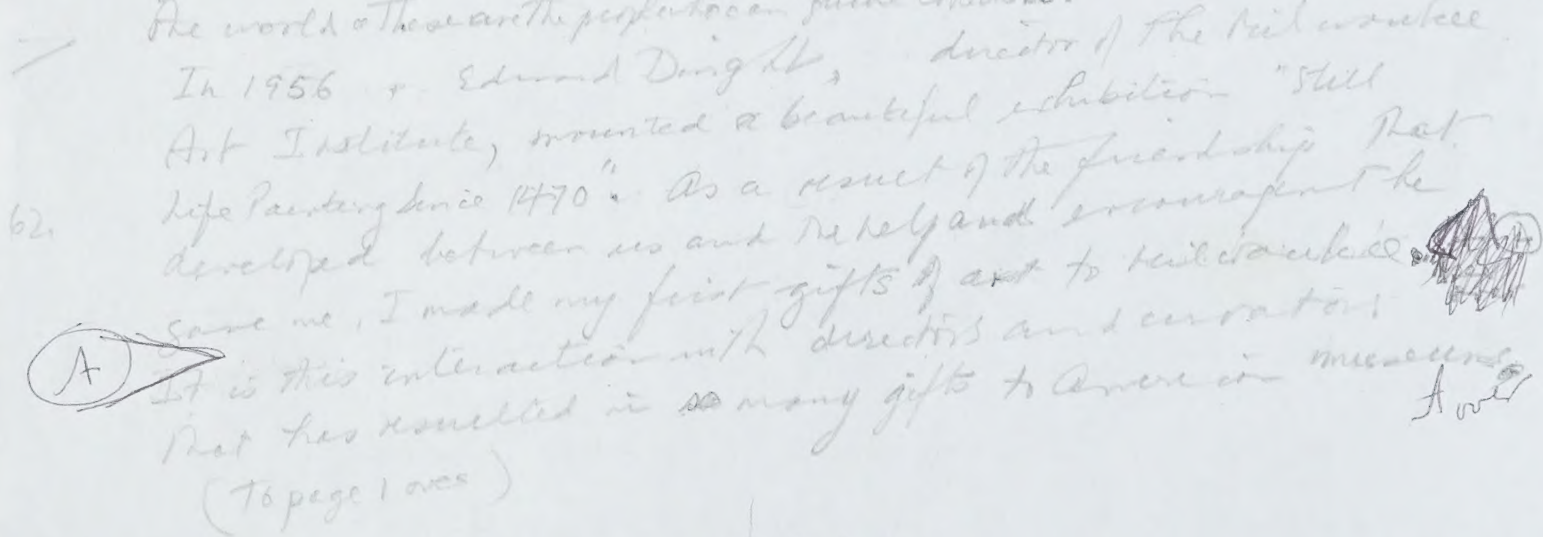 the world. These are the people who can
In 1956, Edward Dwight, director of the Milwaukee
Art Institute, mounted a beautiful exhibition "Still
Life Painting Since 1470". As a result of the friendship that
62. developed between us and the help and encouragement he
gave me, I made my first gifts of art to Milwaukee.
A It is this interaction with directors and curators
that has resulted in so many gifts to American museums.
A over
(To page 1 over)